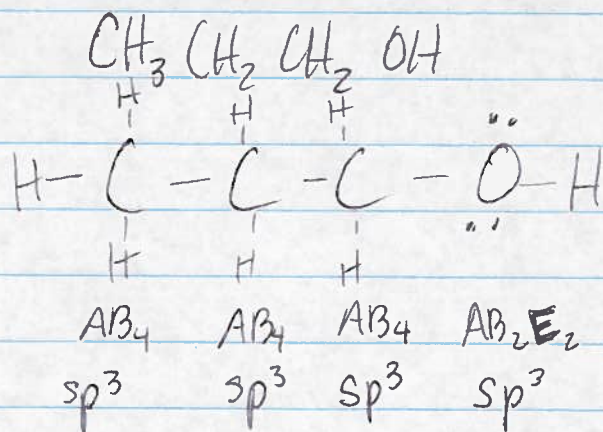 CH3 CH2 CH2 OH
H H H
H - C - C - C - O - H
H H H
AB4 AB4 AB4 AB2E2
sp3 sp3 sp3 sp3